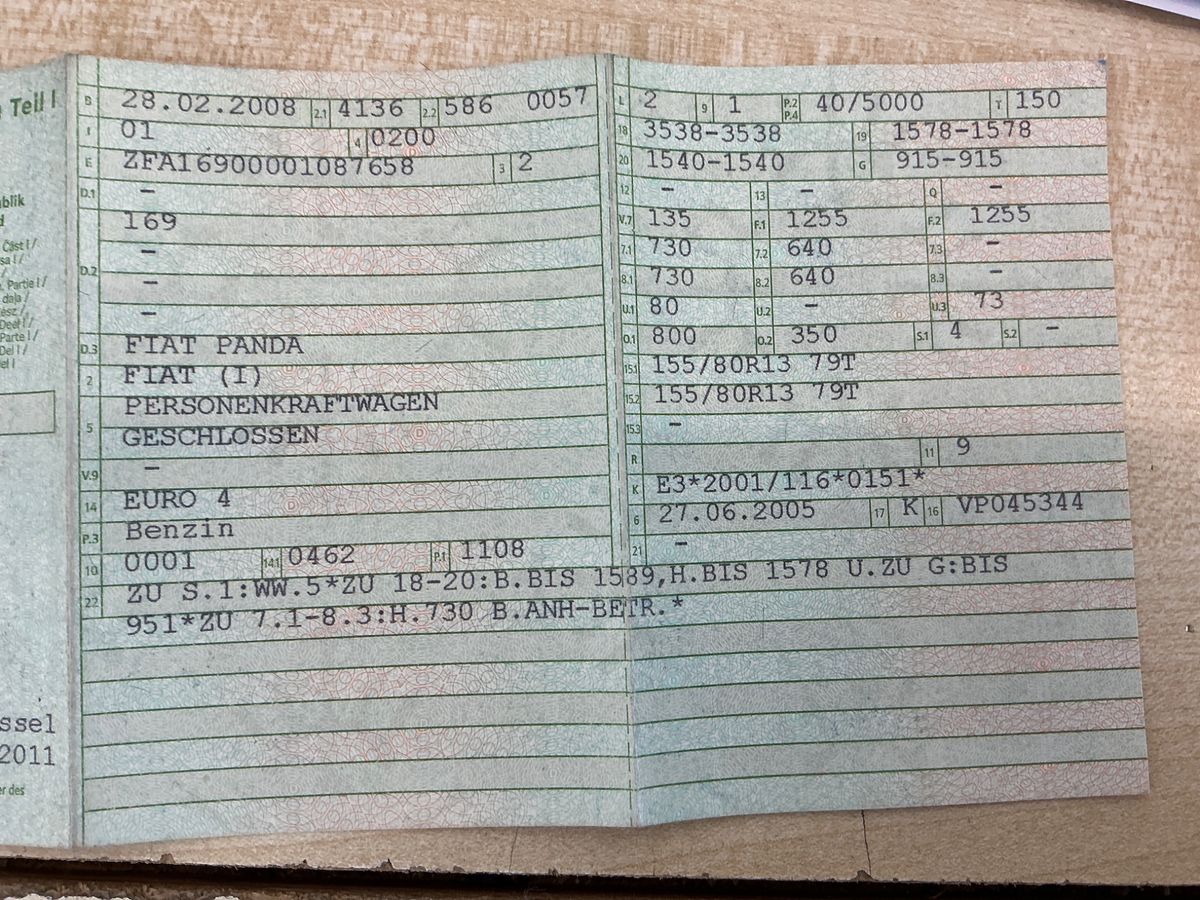 Teil I
blik
d
Část I /
sa I /
/
. Partie I /
daļa /
ész /
Deel I /
Parte I /
Del I /
el I
ssel
2011
er des
B 28.02.2008 2.1 4136 2.2 586 0057
J 01 4 0200
E ZFA16900001087658 3 2
D.1 -
169
-
D.2 -
-
D.3 FIAT PANDA
2 FIAT (I)
5 PERSONENKRAFTWAGEN
GESCHLOSSEN
V.9 -
14 EURO 4
P.3 Benzin
10 0001 14.1 0462 P.1 1108
L 2 9 1 P.2 P.4 40/5000 T 150
18 3538-3538 19 1578-1578
20 1540-1540 G 915-915
12 - 13 - Q -
V.7 135 F.1 1255 F.2 1255
7.1 730 7.2 640 7.3 -
8.1 730 8.2 640 8.3 -
U.1 80 U.2 - U.3 73
O.1 800 O.2 350 S.1 4 S.2 -
15.1 155/80R13 79T
15.2 155/80R13 79T
15.3 -
R 11 9
K E3*2001/116*0151*
6 27.06.2005 17 K 16 VP045344
21 -
22 ZU S.1:WW.5*ZU 18-20:B.BIS 1589,H.BIS 1578 U.ZU G:BIS
951*ZU 7.1-8.3:H.730 B.ANH-BETR.*